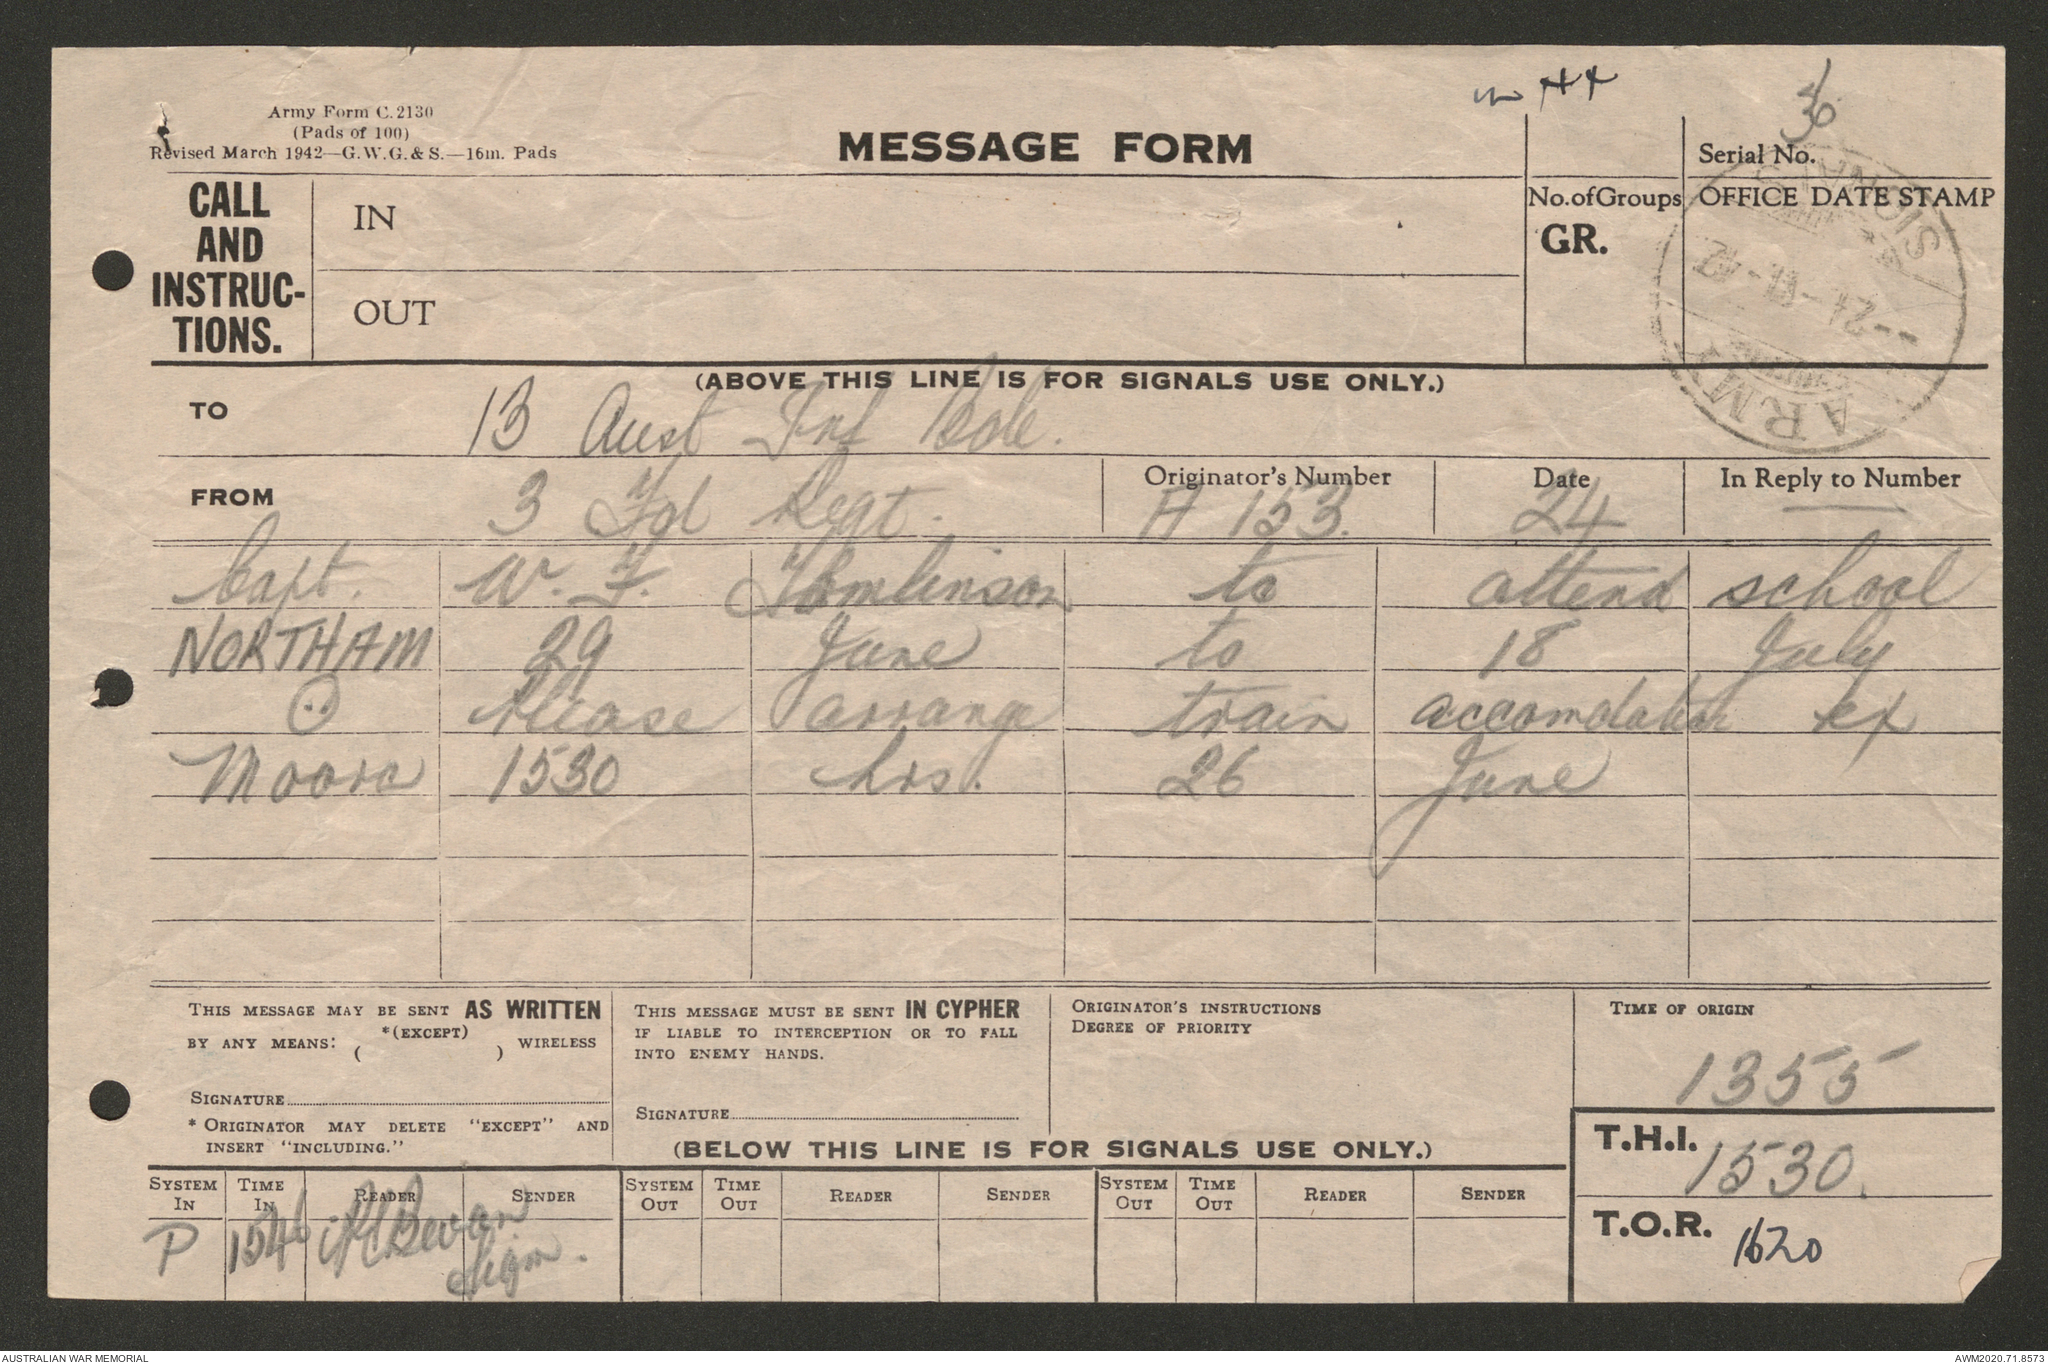 Army Form C.2130
(Pads of 100)
Revised March 1942—G.W.G.& S.—16m. Pads
MESSAGE FORM
36
Serial No.
CALL AND INSTRUC-TIONS.
IN
OUT
No.ofGroups
GR.
OFFICE DATE STAMP
ARMY SIGNALS
(ABOVE THIS LINE IS FOR SIGNALS USE ONLY.)
TO 13 Aust Inf Bde.
FROM 3 Fd Regt. Originator's Number A 153. Date 24 In Reply to Number —
Capt. W. F. Tomlinson to attend school
NORTHAM 29 June to 18 July
Please arrange train accomodation ex
Moora 1530 hrs. 26 June
THIS MESSAGE MAY BE SENT AS WRITTEN
BY ANY MEANS: *(EXCEPT) ( ) WIRELESS
SIGNATURE
* ORIGINATOR MAY DELETE "EXCEPT" AND
INSERT "INCLUDING."
THIS MESSAGE MUST BE SENT IN CYPHER
IF LIABLE TO INTERCEPTION OR TO FALL
INTO ENEMY HANDS.
SIGNATURE
ORIGINATOR'S INSTRUCTIONS
DEGREE OF PRIORITY
TIME OF ORIGIN
1355
(BELOW THIS LINE IS FOR SIGNALS USE ONLY.)
T.H.I. 1530.
T.O.R. 1620
SYSTEM IN TIME IN READER SENDER SYSTEM OUT TIME OUT READER SENDER SYSTEM OUT TIME OUT READER SENDER
P 1546 Bevan
Sigm.
AUSTRALIAN WAR MEMORIAL
AWM2020.71.8573